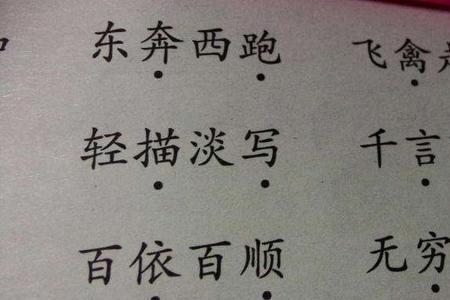 东奔西跑 飞禽
轻描淡写 千言
百依百顺 无穷